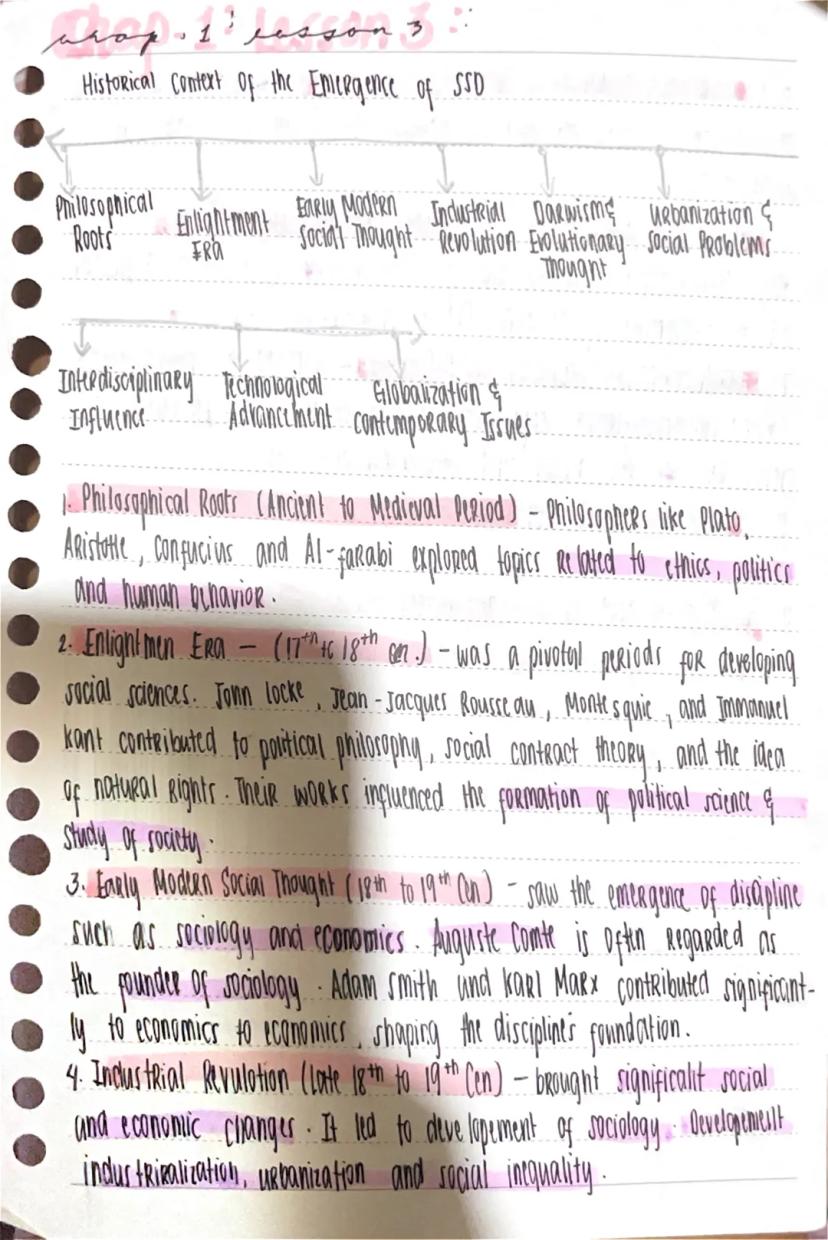 Chap. 1: Lesson 3:
Historical Context Of the Emergence of SSD
Philosophical Roots
Enlightment Era
Early Modern Social Thought
Industrial Revolution
Darwism & Evolutionary Thought
Urbanization & Social Problems
Interdisciplinary Influence
Technological Advancement
Globalization & Contemporary Issues
1. Philosophical Roots (Ancient to Medieval Period) - Philosophers like Plato,
Aristotle, Confucius and Al-farabi explored topics related to ethics, politics
and human behavior.
2. Enlightmen Era - (17th to 18th cen.) - was a pivotal periods for developing
social sciences. John Locke, Jean-Jacques Rousseau, Montesquie, and Immanuel
kant contributed to political philosophy, social contract theory, and the idea
of natural rights. Their works influenced the formation of political science &
study of society.
3. Early Modern Social Thought (18th to 19th Cen) - saw the emergence of discipline
such as sociology and economics. Auguste Comte is often regarded as
the founder of sociology. Adam Smith and Karl Marx contributed significant-
ly to economics to economics, shaping the discipline's foundation.
4. Industrial Revulotion (late 18th to 19th Cen) - brought significant social
and economic changes. It led to developement of sociology. Developement
industrialization, urbanization and social inequality.